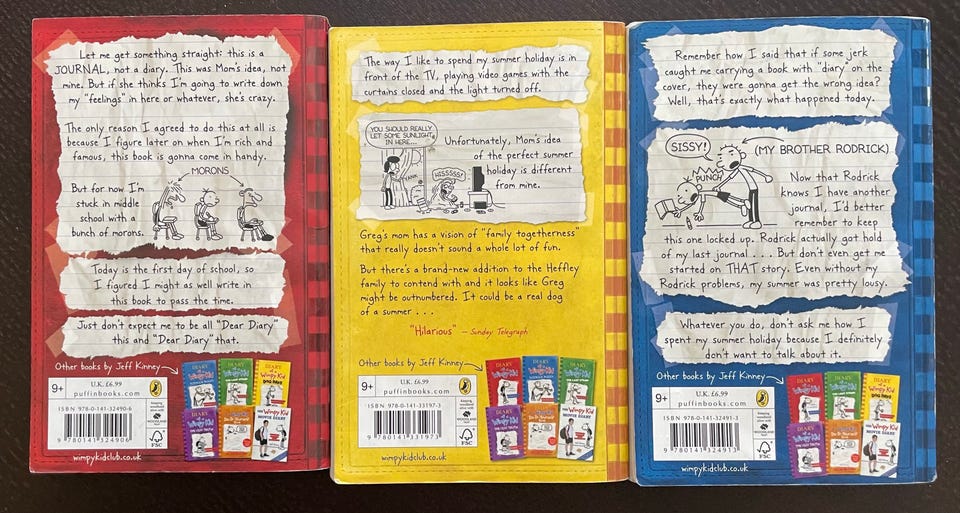 Let me get something straight: this is a
JOURNAL, not a diary. This was Mom's idea, not
mine. But if she thinks I'm going to write down
my "feelings" in here or whatever, she's crazy.
The only reason I agreed to do this at all is
because I figure later on when I'm rich and
famous, this book is gonna come in handy.
MORONS
But for now I'm
stuck in middle
school with a
bunch of morons.
Today is the first day of school, so
I figured I might as well write in
this book to pass the time.
Just don't expect me to be all "Dear Diary"
this and "Dear Diary" that.
Other books by Jeff Kinney
9+
U.K. £6.99
puffinbooks.com
ISBN 978-0-141-32490-6
9 780141 324906
FSC
wimpykidclub.co.uk
The way I like to spend my summer holiday is in
front of the TV, playing video games with the
curtains closed and the light turned off.
YOU SHOULD REALLY
LET SOME SUNLIGHT
IN HERE...
YANK
HISSSSS!
Unfortunately, Mom's idea
of the perfect summer
holiday is different
from mine.
Greg's mom has a vision of "family togetherness"
that really doesn't sound a whole lot of fun.
But there's a brand-new addition to the Heffley
family to contend with and it looks like Greg
might be outnumbered. It could be a real dog
of a summer . . .
"Hilarious" – Sunday Telegraph
Other books by Jeff Kinney
9+
U.K. £6.99
puffinbooks.com
ISBN 978-0-141-33197-3
9 780141 331973
FSC
wimpykidclub.co.uk
Remember how I said that if some jerk
caught me carrying a book with "diary" on the
cover, they were gonna get the wrong idea?
Well, that's exactly what happened today.
SISSY!
(MY BROTHER RODRICK)
PUNCH
Now that Rodrick
knows I have another
journal, I'd better
remember to keep
this one locked up. Rodrick actually got hold
of my last journal . . . But don't even get me
started on THAT story. Even without my
Rodrick problems, my summer was pretty lousy.
Whatever you do, don't ask me how I
spent my summer holiday because I definitely
don't want to talk about it.
Other books by Jeff Kinney
9+
U.K. £6.99
puffinbooks.com
ISBN 978-0-141-32491-3
9 780141 324913
FSC
wimpykidclub.co.uk